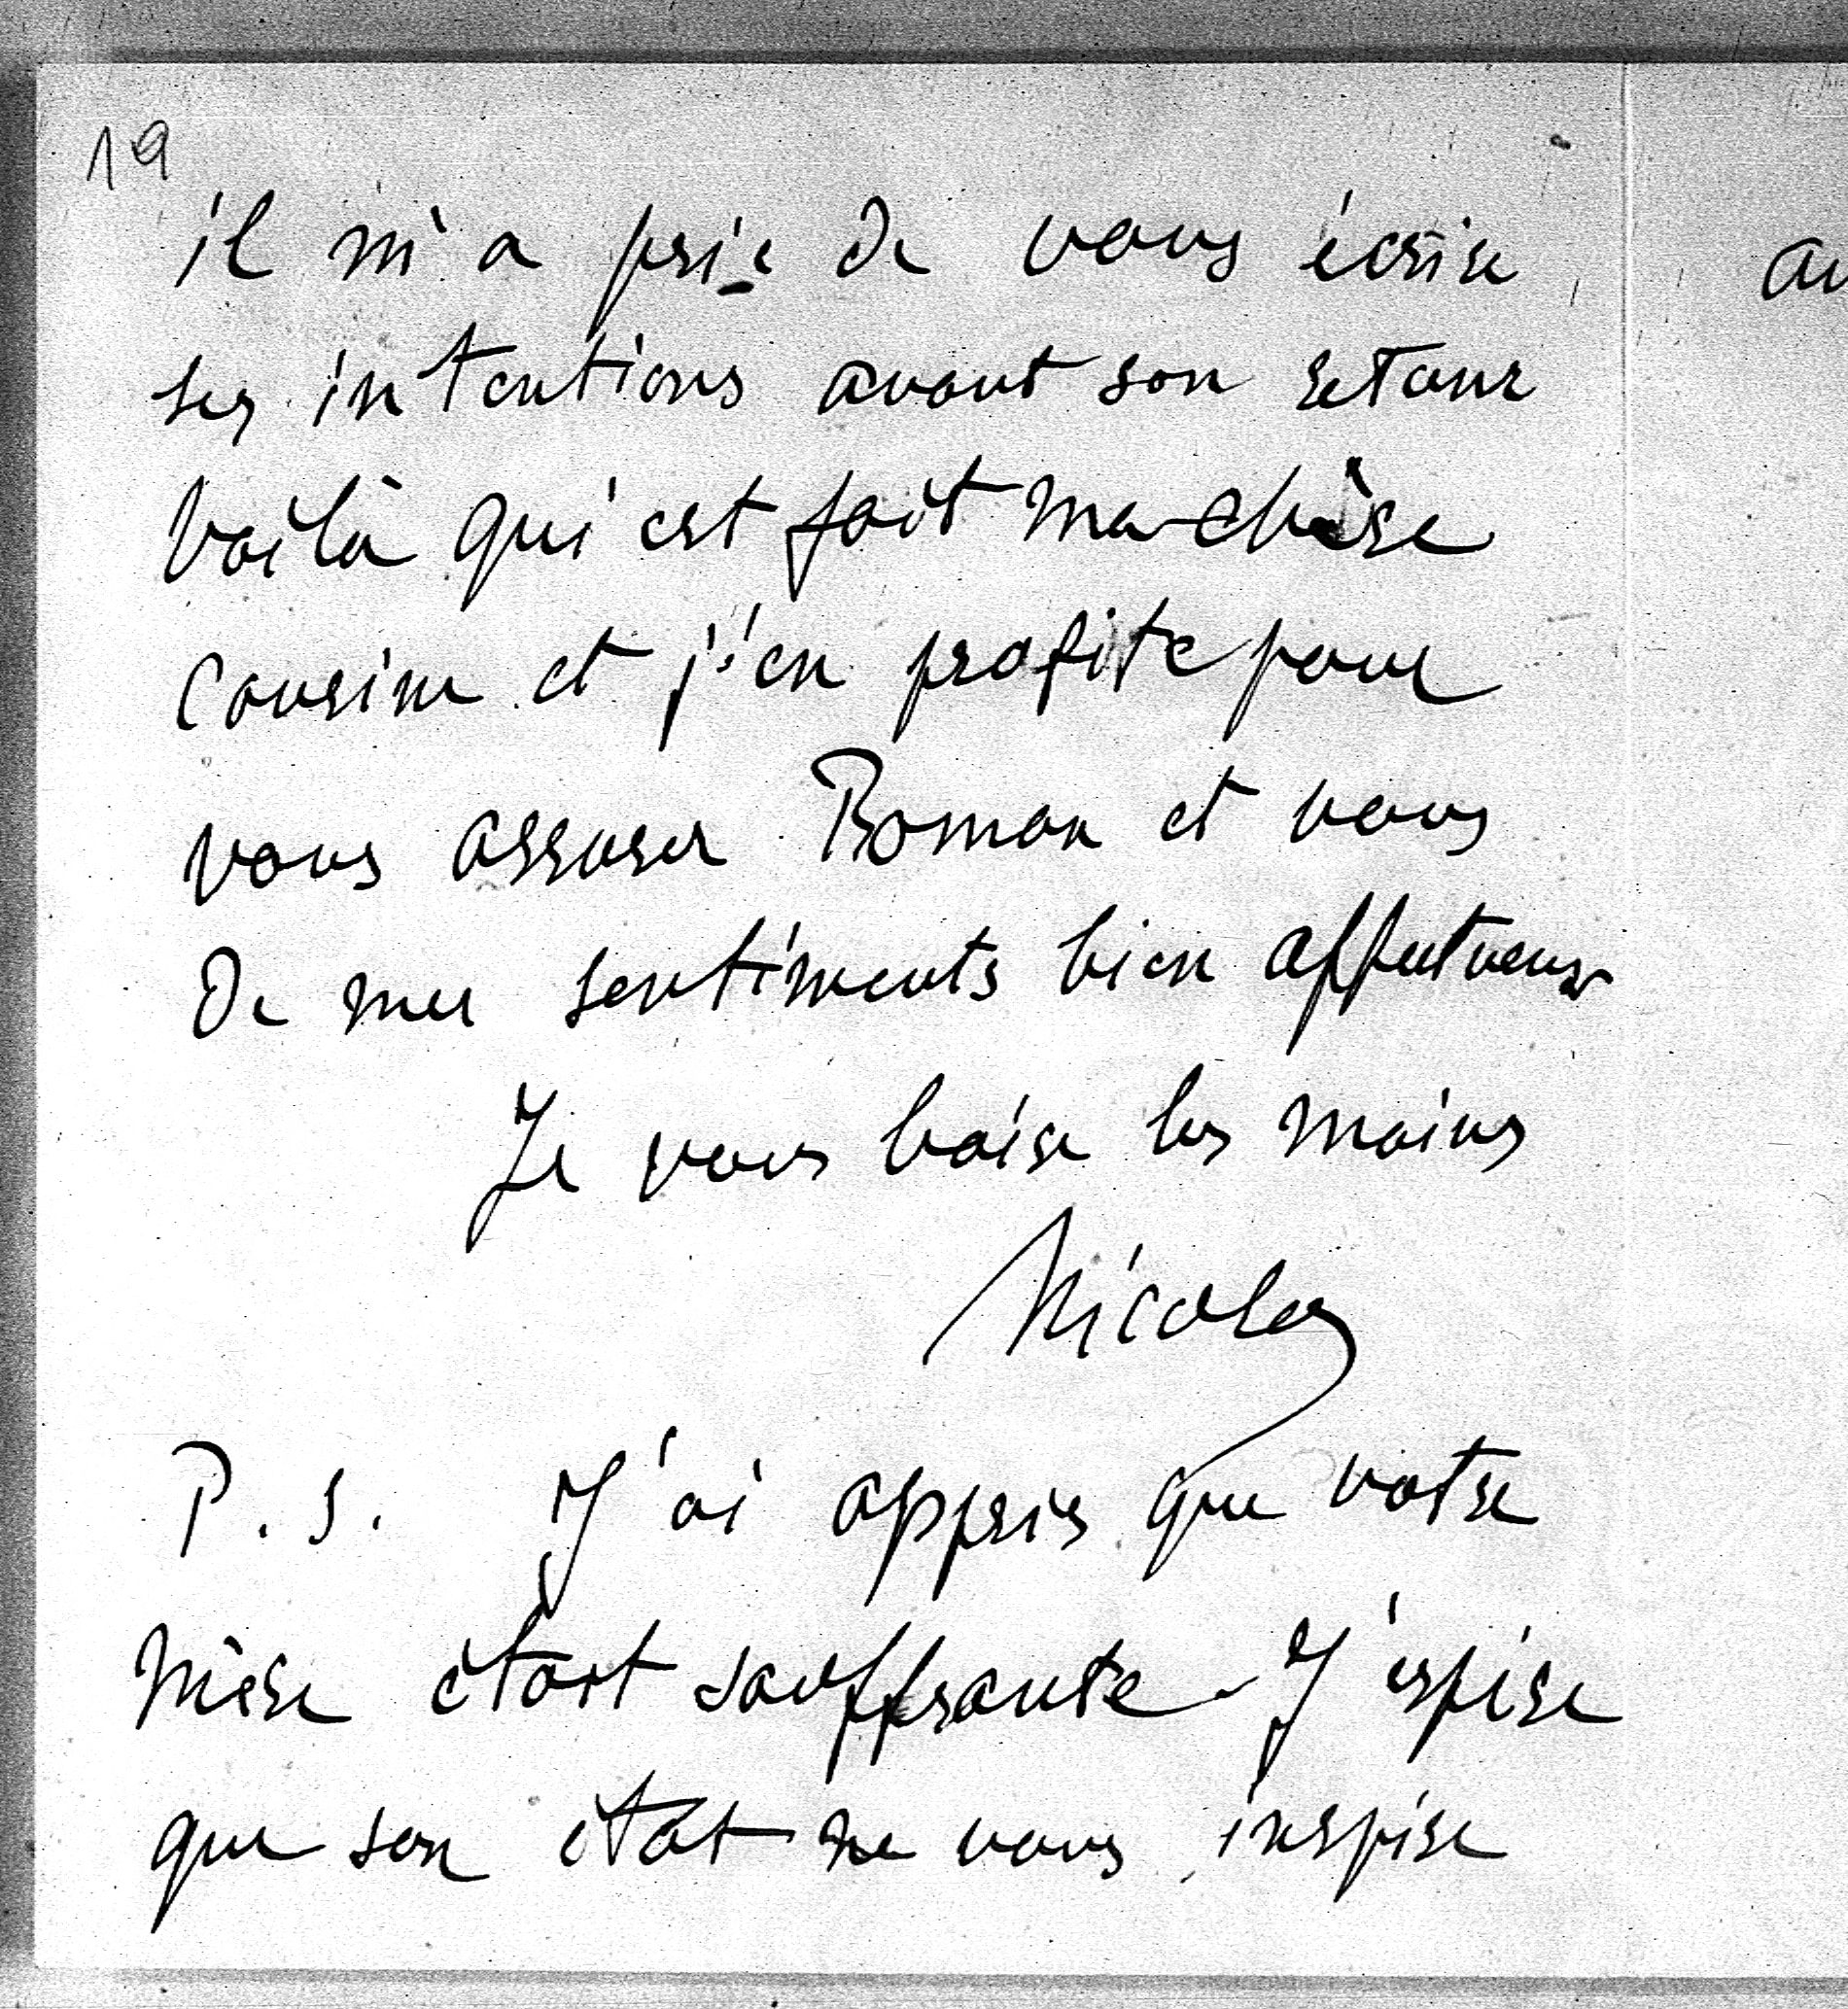 19
il m'a prié de vous écrire
ses intentions avant son retour
Voilà qui est fait ma chère
Cousine et j'en profite pour
vous assurer Roman et vous
de mes sentiments bien affectueux
Je vous baise les mains
Nicolas
P. S. J'ai appris que votre
Mère était souffrante. J'espère
que son état ne vous inspire